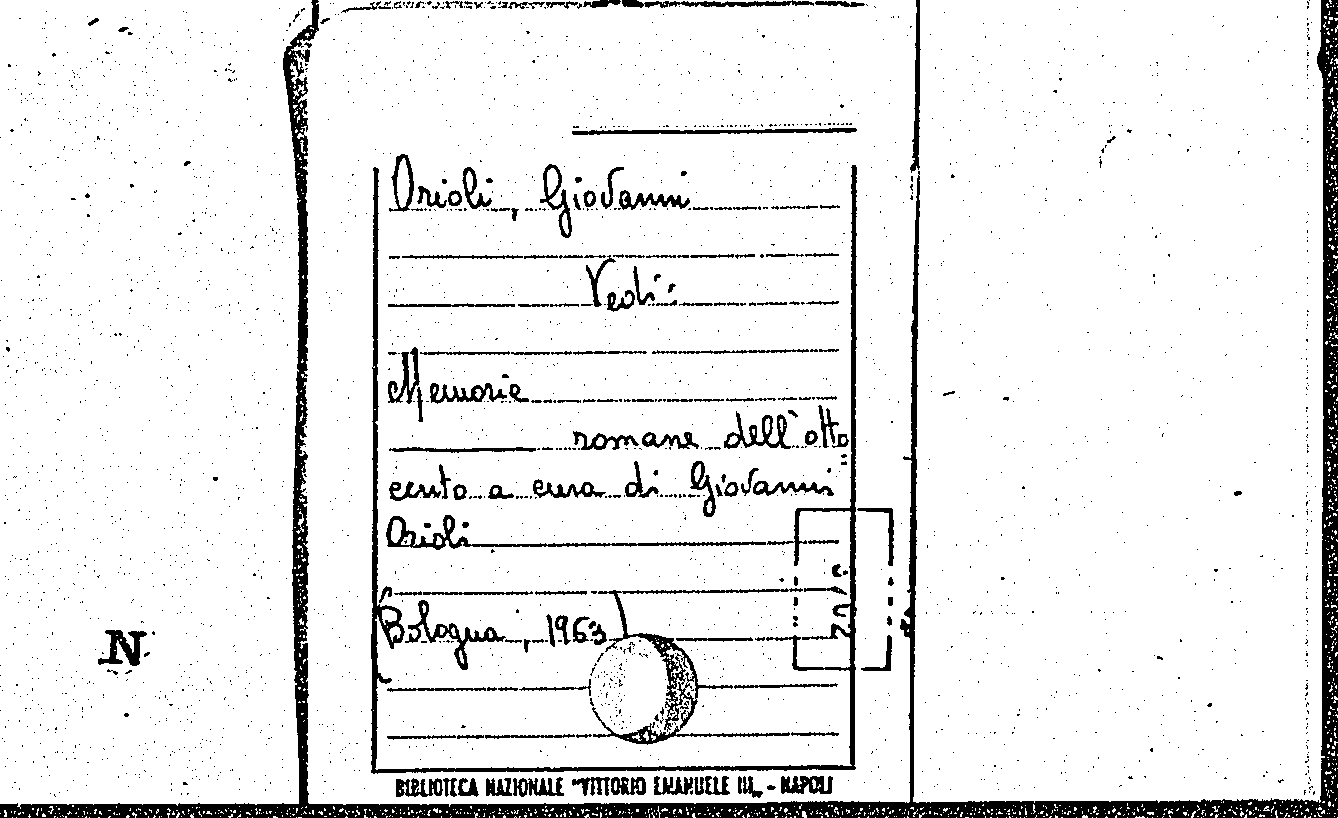 Orioli, Giovanni
Vedi:
Memorie
romane dell'otto
cento a cura di Giovanni
Orioli
(Bologna, 1963)
N
BIBLIOTECA NAZIONALE "VITTORIO EMANUELE III„ - NAPOLI